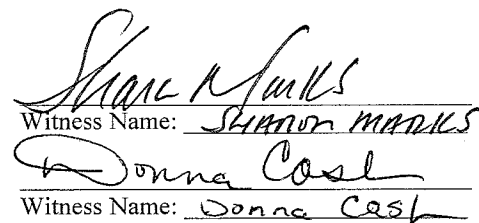 Sharon Marks
Witness Name: SHARON MARKS
Donna Cash
Witness Name: Donna Cash